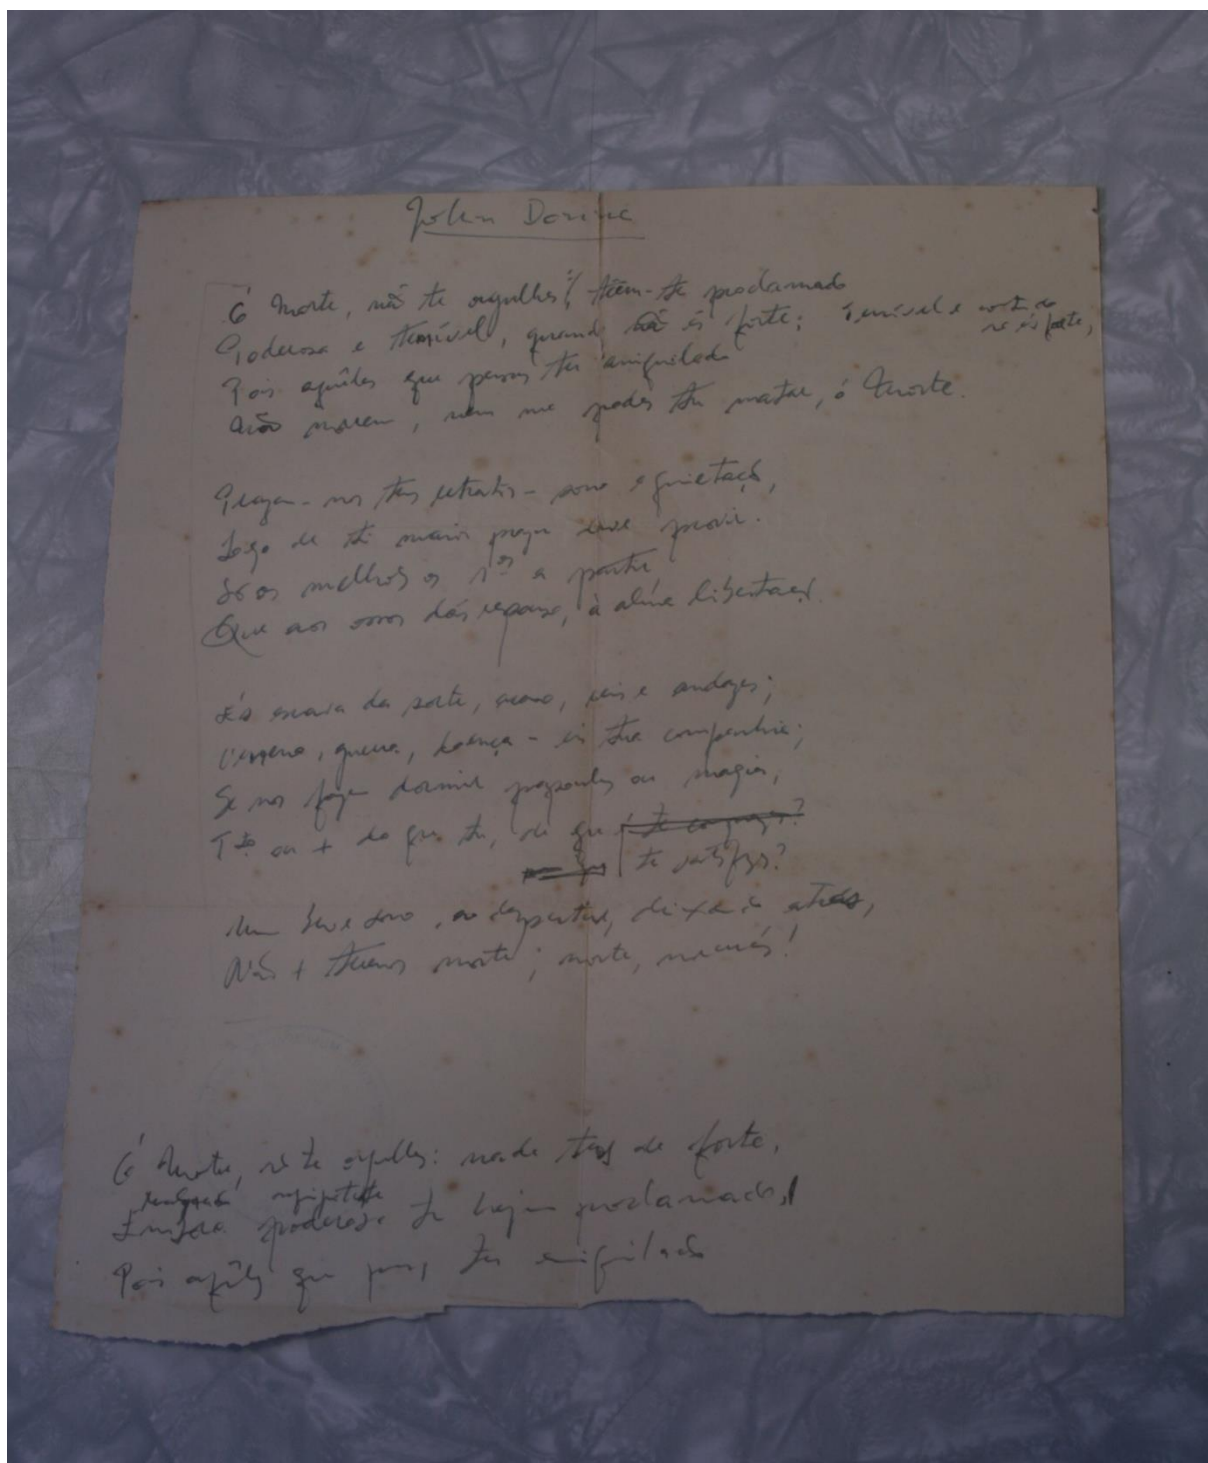 John Donne
Ó Morte, não te orgulhes! têm-te proclamado
Poderosa e temível, quando não és forte; temível e contudo
não és forte,
Pois aquêles que pensas ter aniquilado
Não morrem, nem me podes tu matar, ó Morte.
Prazem-nos teus retratos - sono e quietação,
Logo de ti maior prazer deve provir.
São os melhores os 1os a partir
Que aos ossos dás repouso, à alma libertação.
És escrava da sorte, acaso, reis e audazes;
Veneno, guerra, doença - eis tua companhia;
Se nos fazem dormir papoulas ou magia,
Tto ou + do que tu, de que
te satisfazes?
Um breve sono, ao despertar, deixado atrás,
Não + temos morte; morte, morrerás!
Ó Morte, não te orgulhes: nada tens de forte,
Embora poderosa te hajam proclamado,
Pois aquêles que pensas ter aniquilado